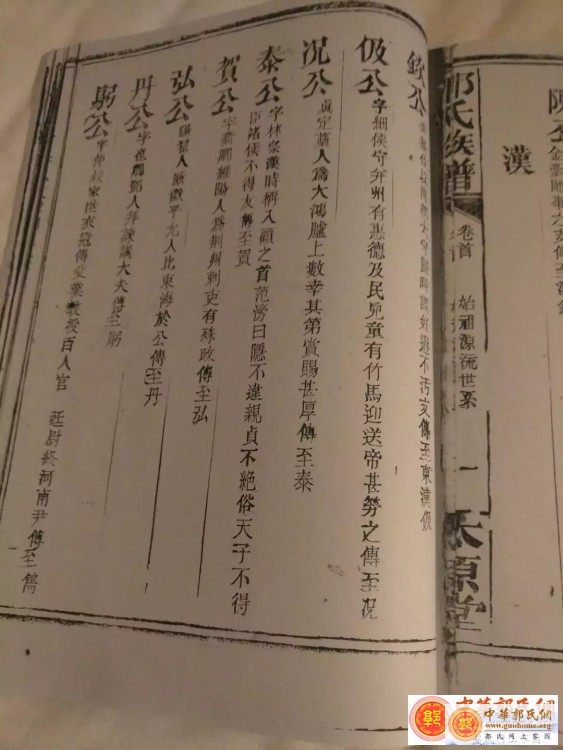 漢
郭氏族譜
卷首
始祖源流世系
一
太原堂
欽公
伋公字細侯守并州有惠德及民兒童有竹馬迎送帝甚勞之傳至况
况公真定藁人為大鴻臚上數幸其第賞賜甚厚傳至泰
泰公字林宗漢時稱入顧之首范滂曰隱不違親貞不絕俗天子不得
臣諸侯不得友傳至賀
賀公字喬卿雒陽人為荊州刺吏有殊政傳至弘
弘公陽翟人斷獄平允人比東海於公傳至丹
丹公字也廬鄧人拜諫議大夫傳至躬
躬公字仲叔家世衣冠傳父業教授百人官
廷尉終河南尹傳至儁
中華郭氏網
www.guohome.org
中華郭氏網
www.guohome.org
郭氏網上家園